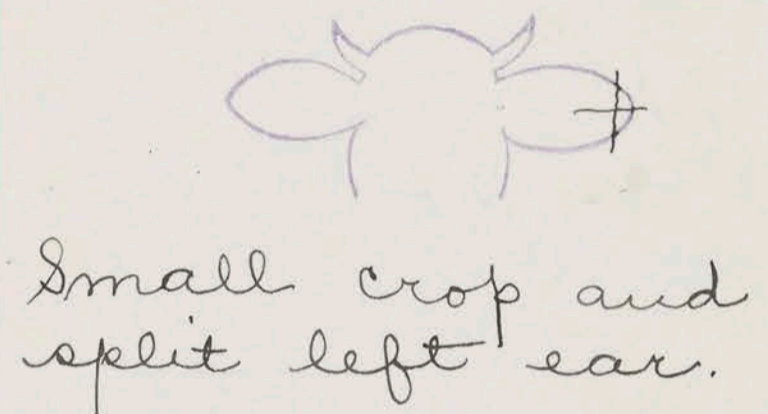 Small crop and
split left ear.